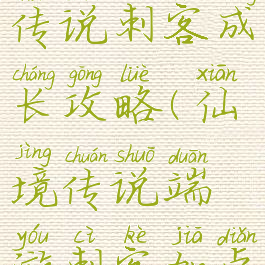 传说刺客成
cháng gōng lüè xiān
长攻略(仙
jìng chuán shuō duān
境传说端
yóu cì kè jiā diǎn
游刺客加点